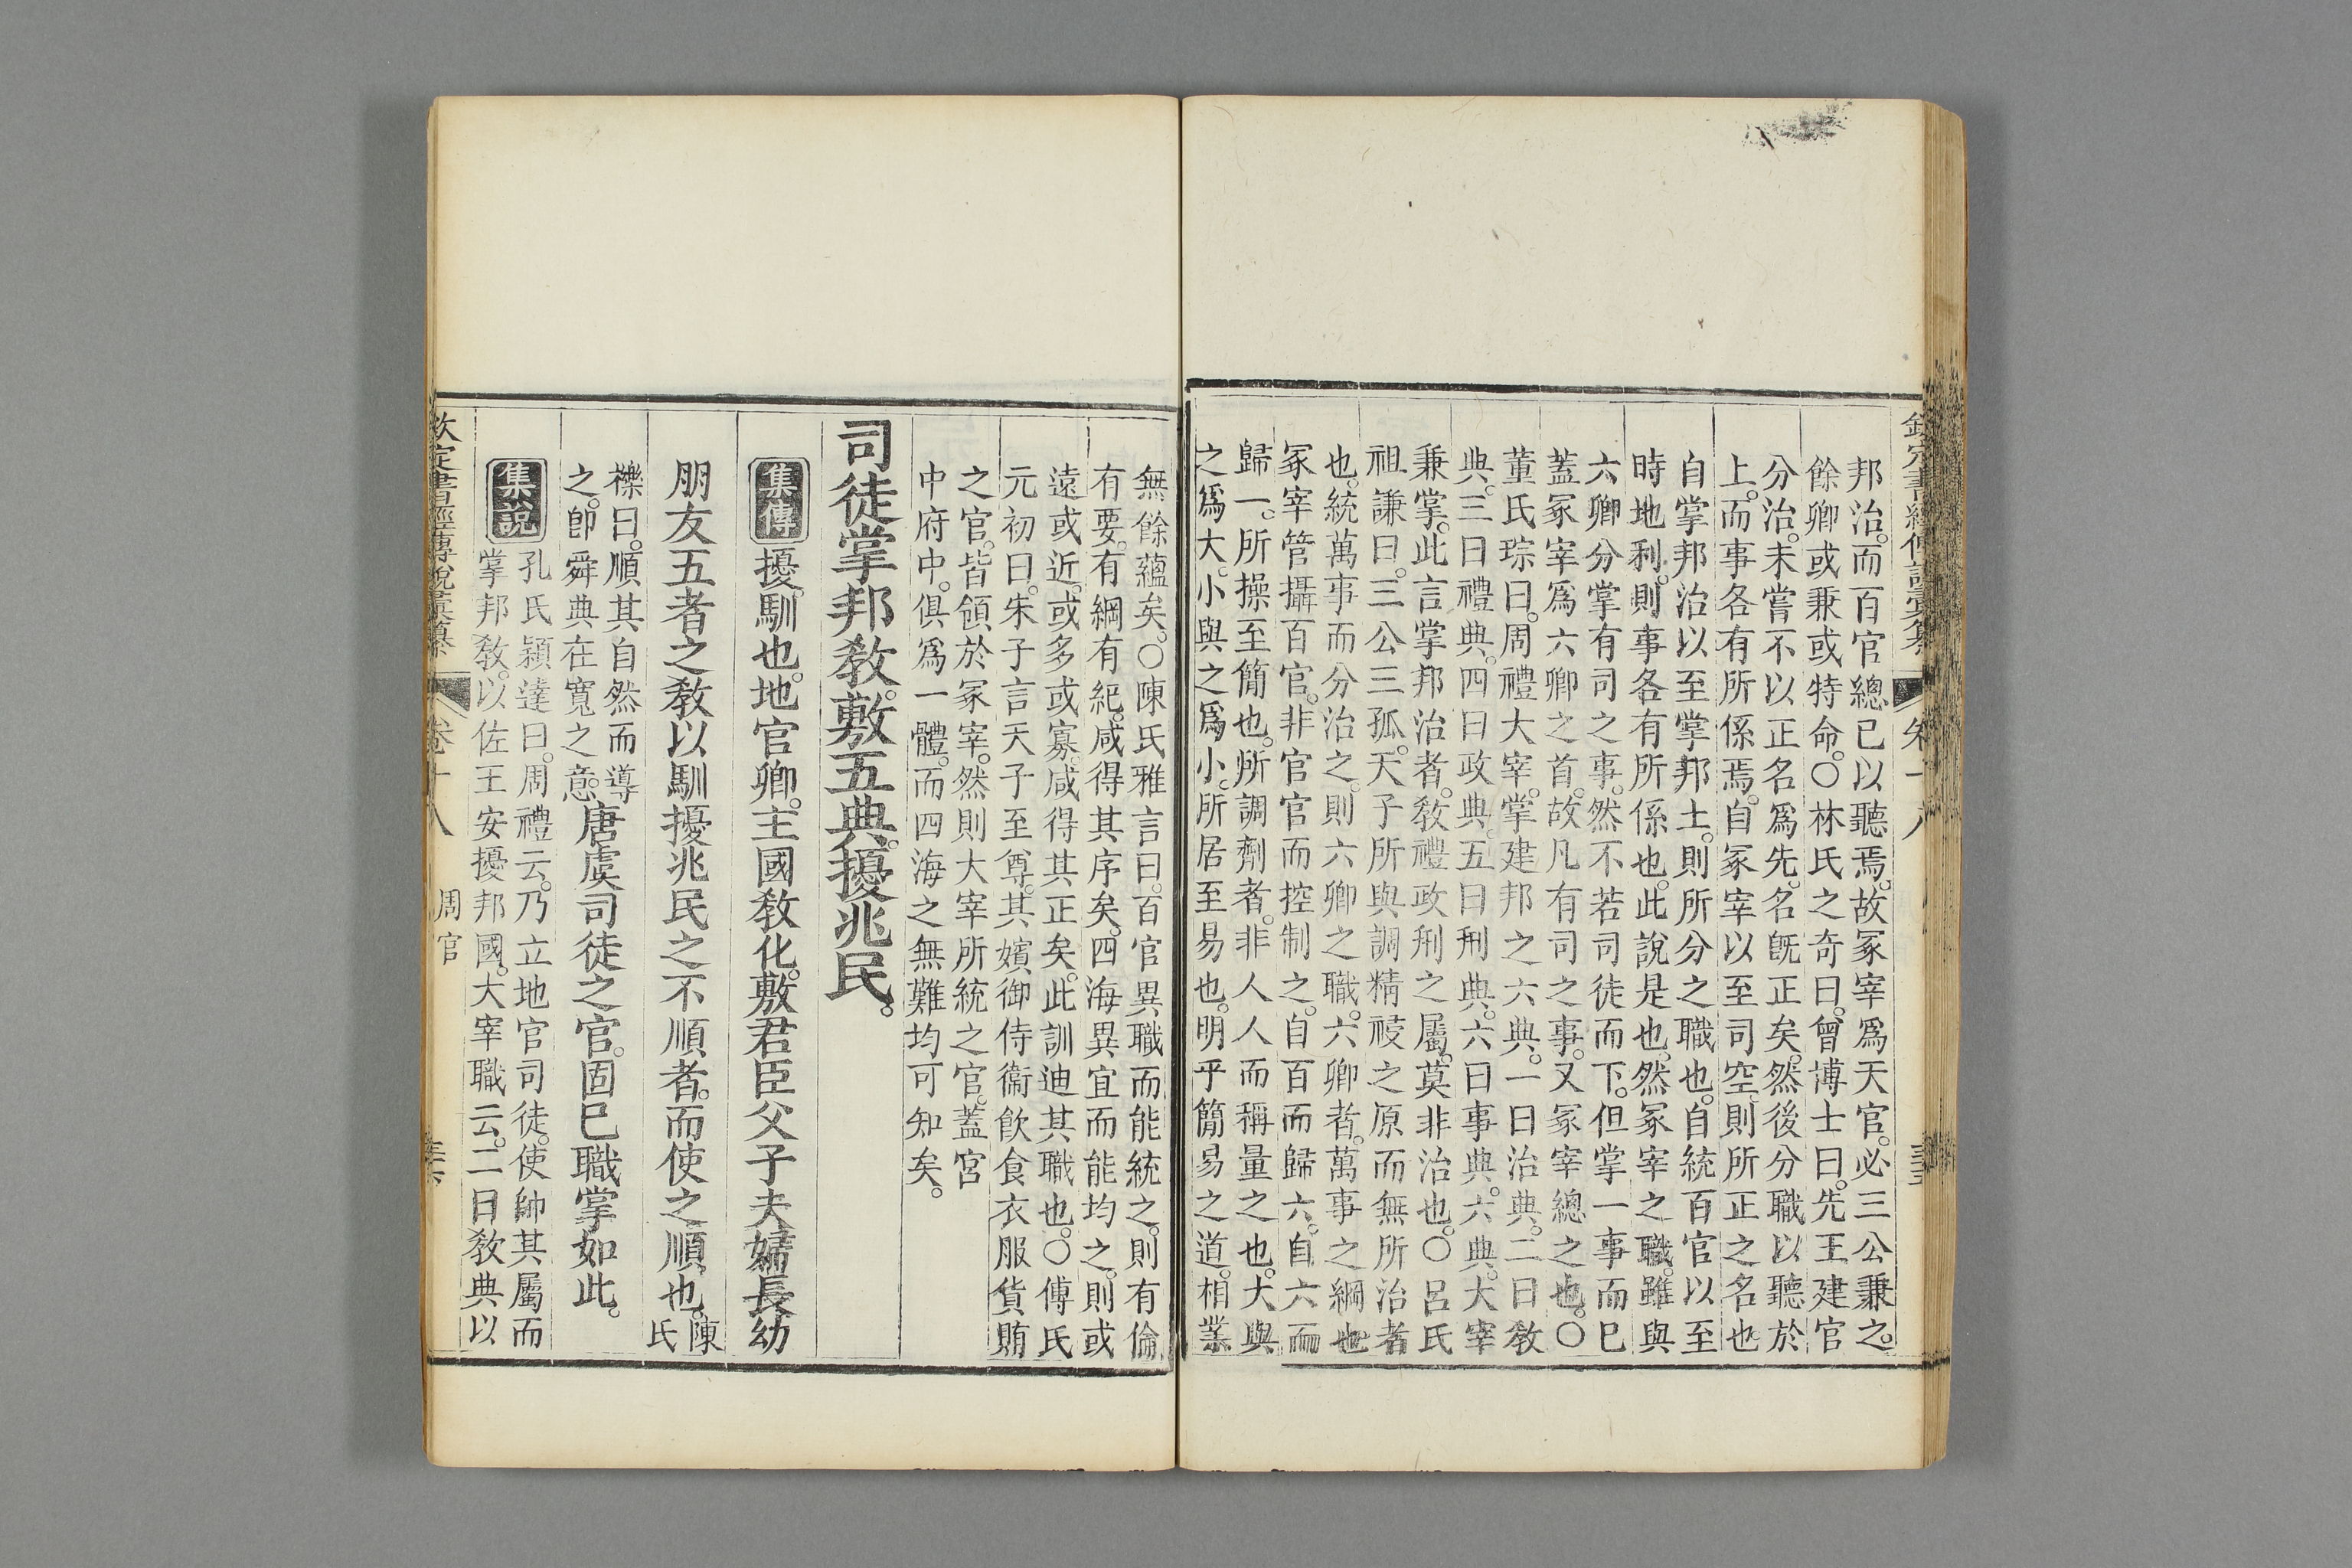 邦治。而百官總已以聽焉。故冢宰爲天官。必三公兼之。
餘卿或兼或特命。○林氏之奇曰。曾博士曰。先王建官
分治。未嘗不以正名爲先。名旣正矣。然後分職以聽於
上。而事各有所係焉。自冢宰以至司空。則所正之名也
自掌邦治以至掌邦土。則所分之職也。自統百官以至
時地利。則事各有所係也。此說是也。然冢宰之職。雖與
六卿分掌有司之事。然不若司徒而下。但掌一事而已
蓋冢宰爲六卿之首。故凡有司之事。又冢宰總之也。○
董氏琮曰。周禮大宰。掌建邦之六典。一曰治典。二曰敎
典。三曰禮典。四曰政典。五曰刑典。六曰事典。六典。大宰
兼掌。此言掌邦治者。敎禮政刑之屬。莫非治也。○呂氏
祖謙曰。三公三孤。天子所與調精祲之原而無所治者
也。統萬事而分治之。則六卿之職。六卿者。萬事之綱也
冢宰管攝百官。非官官而控制之。自百而歸六。自六而
歸一。所操至簡也。所調劑者。非人人而稱量之也。大與
之爲大。小與之爲小。所居至易也。明乎簡易之道。相業
無餘蘊矣。○陳氏雅言曰。百官異職而能統之。則有倫
有要。有綱有紀。咸得其序矣。四海異宜而能均之。則或
遠或近。或多或寡。咸得其正矣。此訓迪其職也。○傅氏
元初曰。朱子言天子至尊。其嬪御侍衞飮食衣服貨賄
之官。皆領於冢宰。然則大宰所統之官。蓋宮
中府中。俱爲一體。而四海之無難均可知矣。
司徒掌邦敎。敷五典。擾兆民。
集傳 擾。馴也。地官卿。主國敎化。敷君臣父子夫婦長幼
朋友五者之敎以馴擾兆民之不順者。而使之順也。陳氏
櫟曰。順其自然而導之。卽舜典在寬之意。唐虞司徒之官。固已職掌如此。
集說 孔氏穎達曰。周禮云。乃立地官司徒。使帥其屬而
掌邦敎。以佐王安擾邦國。大宰職云。二曰敎典以
欽定書經傳說彙纂 卷十八 周官